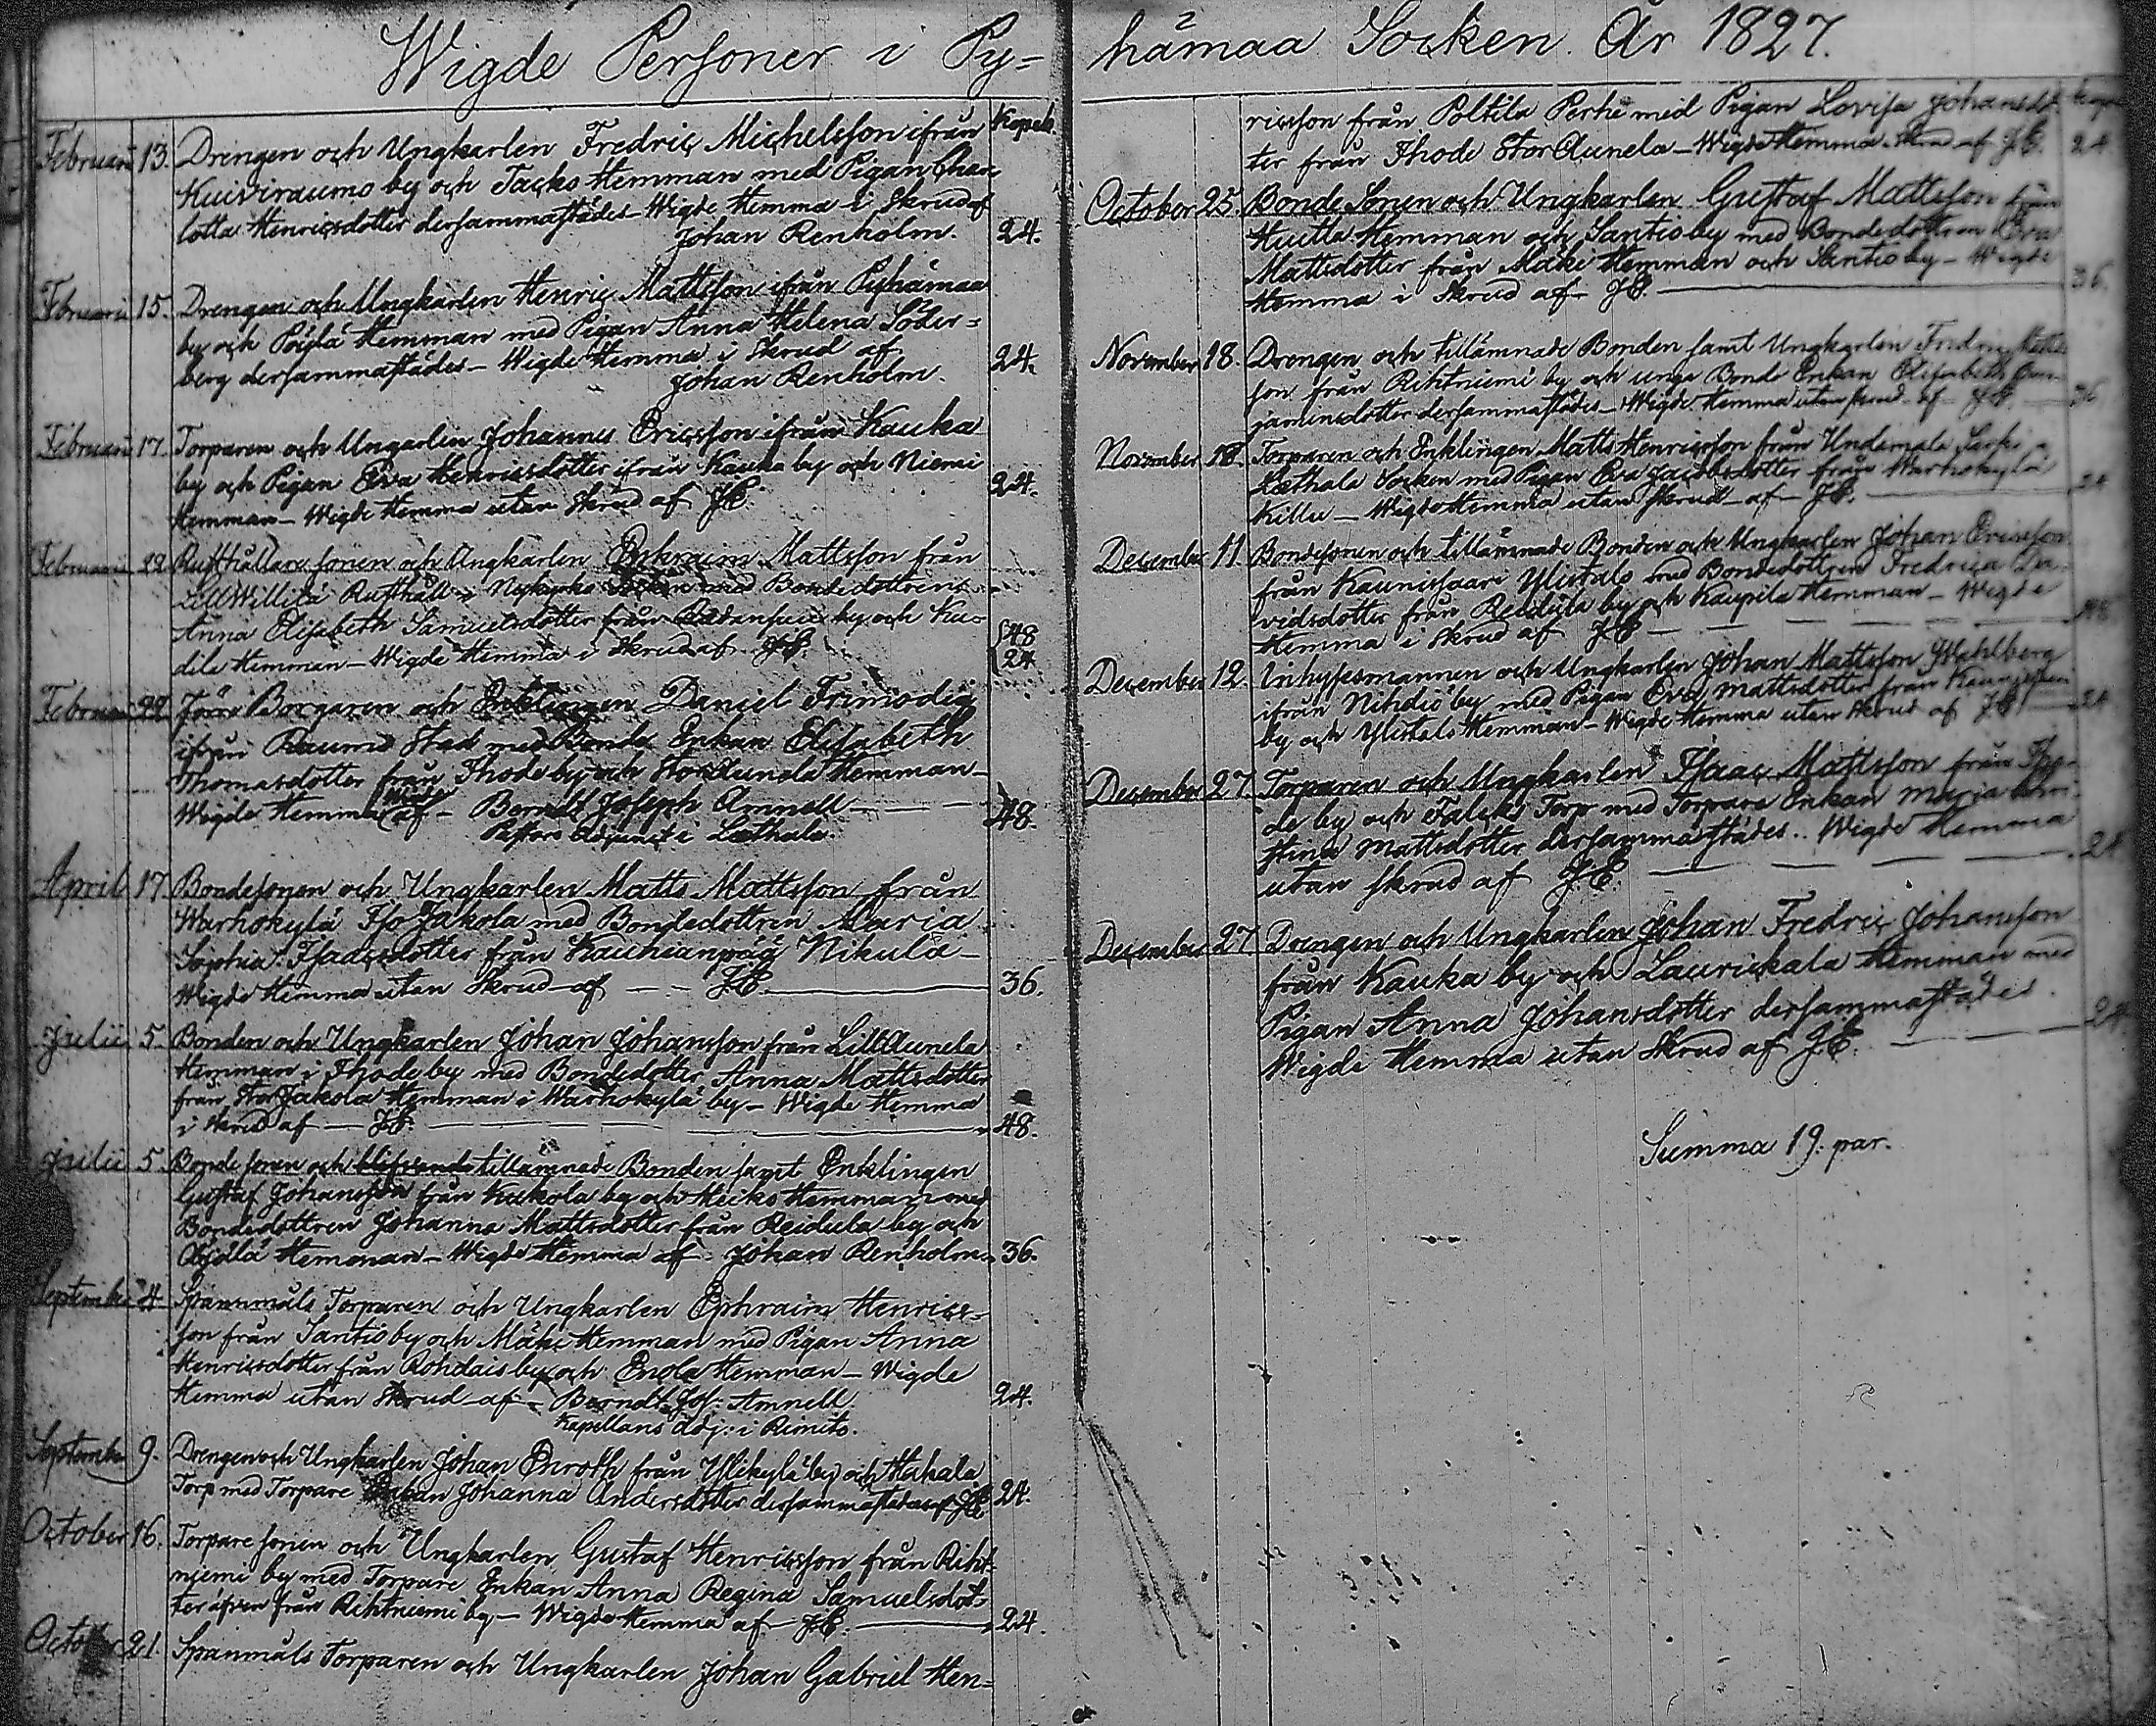 Wigde Personer i Py=
Kopek.
Februarii 13. Drengen och Ungkarlen Fredric Michelsson ifrån
Kuiviraumo by och Tacks Hemman med Pigan Char
lotta Henricsdotter dersammastädes - Wigde Hemma i Skrud af
Johan Renholm. 24.
Februarii 15. Drengen och Ungkarlen Henric Mattsson ifrån Pyhämaa
by och Pöylä Hemman med Pigan Anna Helena Söder=
berg dersammastädes - Wigde Hemma i Skrud af 24.
Johan Renholm.
Februarii 17. Torparen och Ungarlen Johannes Ericsson ifrån Kauka
by och Pigan Eva Henricsdotter ifrån Kauka by och Niemi 24.
Hemman - Wigde Hemma utan Skrud af JE.
Februarii 22. Rusthållare sonen och Ungkarlen Ephraim Mattsson från
LillWillilä Rusthåll i Nykyrko Socken med Bondedottren
Anna Elisabeth Samuelsdotter från by och Ku= 48
dila Hemman - Wigde Hemma i Skrud af JE. 24
Februarii 22. Förre Borgaren och Enklingen Daniel Frimodig
ifrån Raumo Stad med Bonde Enkan Elisabeth
Thomasdotter från Ihode by och StorAunela Hemman -
Wigde Hemma af - Berndt Joseph Amnell - 48.
Pastors Adjunct i Lethala.
April 17 Bondesonen och Ungkarlen Matts Mattsson från
Warhokylä Iso Jakola med Bondedottren Maria
Sophia Isacsdotter från Kauhianpää Nikula -
Wigde Hemma utan Skrud af - - JE. 36.
Julii 5. Bonden och Ungkarlen Johan Johansson från LillAunela
Hemman i Ihode by med Bondedotter Anna Mattsdotter
från StorJakola Hemman i Warhokylä by - Wigde Hemma
i Skrud af - JE. 48.
Julii 5. Bonde sonen och blifvande tillämnade Bonden samt Enklingen
Gustaf Johansson från Kukola by och Mecks Hemman med
Bondedottren Johanna Mattsdotter från Reidula by och
Hemman - Wigde Hemma af Johan Renholm. 36.
September 4. Spannmåls Torparen och Ungkarlen Ephraim Henrics=
son från Santio by och Mäki Hemman med Pigan Anna
Henricsdotter från Rohdais by och Enola Hemman - Wigde
Hemma utan Skrud af - Berndt Jos: Amnell. 24.
Kapellans Adj: i Rimito.
September 9. Drengen och Ungkarlen Johan Enroth från Ylikylä by och Hakala
Torp med Torpare Enkan Johanna Andersdotter dersammastädes af JE. 24.
October 16. Torpare sonen och Ungkarlen Gustaf Henricsson från Riht=
niemi by med Torpare Enkan Anna Regina Samuelsdot=
ter äfven från Rihtniemi by - Wigde Hemma af JE. 24.
October 21. Spanmåls Torparen och Ungkarlen Johan Gabriel Hen=
hämaa Socken. År 1827.
ricsson från Poltila Perhe med Pigan Lovisa Johansdot
ter från Ihode StorAunela - Wigde Hemma Skrud af JE. 24
October 25. Bonde Sonen och Ungkarlen Gustaf Mattsson från
Huitta Hemman och Santio by med Bondedottren Eva
Mattsdotter från Mäki Hemman och Santio by - Wigde
Hemma i Skrud af JE. 36.
November 18. Drengen och tillämnade Bonden samt Ungkarlen Fredric Matts
son från Rihtniemi by och unga Bonde Enkan Elisabeth Ben=
jaminsdotter dersammastädes - Wigde Hemma utan skrud af JE. 36
November 18. Torparen och Enklingen Matts Henricsson från Undimala
Lethala Socken med Pigan Eva Jacobsdotter från Warhokylä
Killu - Wigde Hemma utan Skrud af JE. 24
December 11. Bondesonen och tillämnade Bonden och Ungkarlen Johan Ericsson
från Kaunissaari Ylistalo med Bondedottren Fredrica Da=
vidsdotter från Reidula by och Kaupila Hemman - Wigde
Hemma i Skrud af JE 48
December 12. Inhysesmannen och Ungkarlen Johan Mattsson Wahlberg
ifrån Nihdiö by med Pigan Eva Mattsdotter från Kaunissari
by och Ylistalo Hemman - Wigde Hemma utan Skrud af JE. 24
December 27. Torparen och Ungkarlen Isaac Mattsson från Iho=
de by och Falcks Torp med Torpare Enkan Maria Chri=
stina Mattsdotter dersammastädes. Wigde Hemma
utan skrud af JE. 24
December 27. Drengen och Ungkarlen Johan Fredric Johansson
från Kauka by och Laurickala Hemman med
Pigan Anna Johansdotter dersammastädes.
Wigde Hemma utan Skrud af JE. 24
Summa 19. par.